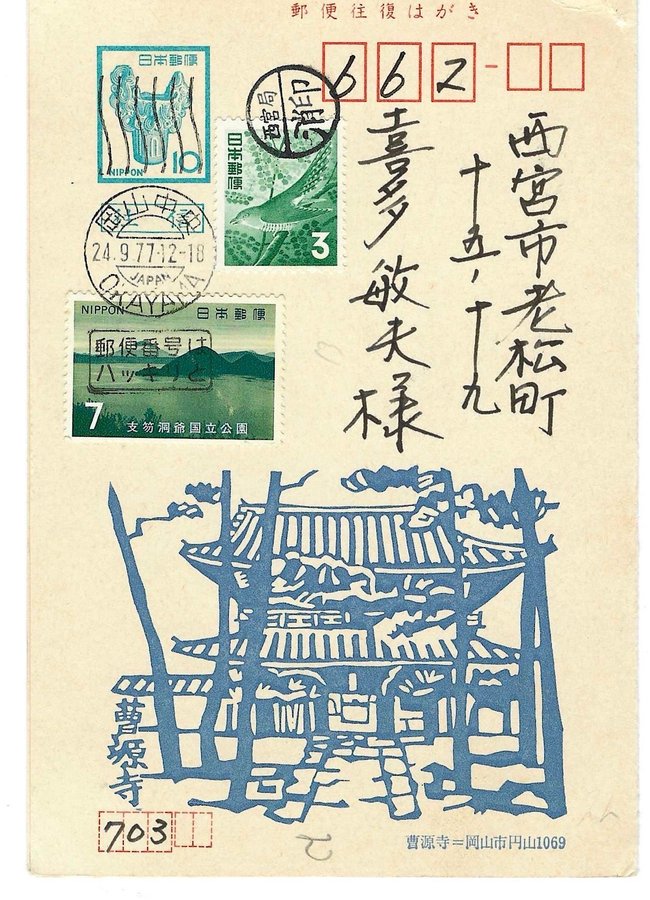 郵便往復はがき
日本郵便
NIPPON
10
662-
西宮局
消印
日本郵便
3
岡山中央
24.9.77.12-18
JAPAN
OKAYAMA
NIPPON 日本郵便
郵便番号は
ハッキリと
7
支笏洞爺国立公園
西宮市老松町
十五ノ十九
喜多敏夫様
曹源寺
703
曹源寺=岡山市円山1069